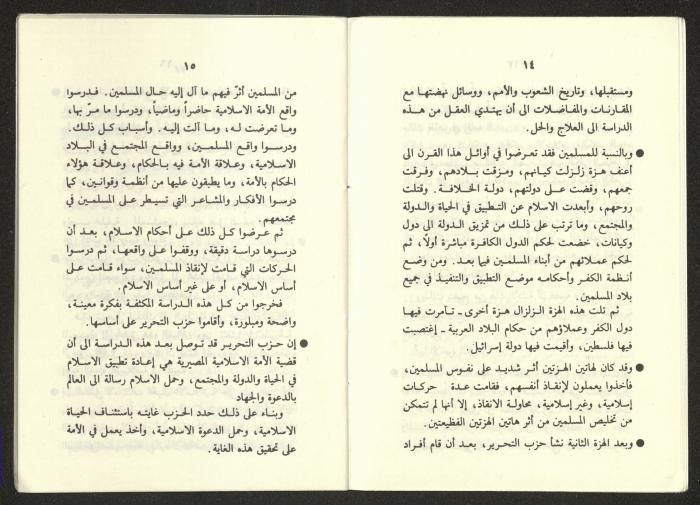 ١٤
ومستقبلها، وتاريخ الشعوب والأمم، ووسائل نهضتها مع
المقارنات والمفاضلات الى أن يهتدي العقل من هذه
الدراسة الى العلاج والحل.
● وبالنسبة للمسلمين فقد تعرضوا في أوائل هذا القرن الى
أعنف هزة زلزلت كيانهم، ومزقت بلادهم، وفرقت
جمعهم، وقضت على دولتهم، دولة الخلافة. وقتلت
روحهم، وأبعدت الاسلام عن التطبيق في الحياة والدولة
والمجتمع، وما ترتب على ذلك من تمزيق الدولة الى دول
وكيانات، خضعت لحكم الدول الكافرة مباشرة أولاً، ثم
لحكم عملائهم من أبناء المسلمين فيما بعد. ومن وضع
أنظمة الكفر وأحكامه موضع التطبيق والتنفيذ في جميع
بلاد المسلمين.
ثم تلت هذه الهزة الزلزال هزة أخرى ـ تآمرت فيها
دول الكفر وعملاؤهم من حكام البلاد العربية ـ إغتصبت
فيها فلسطين، وأقيمت فيها دولة إسرائيل.
● وقد كان لهاتين الهزتين أثر شديد على نفوس المسلمين،
فأخذوا يعملون لإنقاذ أنفسهم، فقامت عدة حركات
إسلامية، وغير إسلامية، محاولة الانقاذ، إلا أنها لم تتمكن
من تخليص المسلمين من أثر هاتين الهزتين الفظيعتين.
● وبعد الهزة الثانية نشأ حزب التحرير، بعد أن قام أفراد
١٥
من المسلمين أثّر فيهم ما آل إليه حال المسلمين. فدرسوا
واقع الأمة الاسلامية حاضراً وماضياً، ودرسوا ما مرّ بها،
وما تعرضت له، وما آلت إليه. وأسباب كل ذلك.
ودرسوا واقع المسلمين، وواقع المجتمع في البلاد
الاسلامية، وعلاقة الأمة فيه بالحكام، وعلاقة هؤلاء
الحكام بالأمة، وما يطبقون عليها من أنظمة وقوانين، كما
درسوا الأفكار والمشاعر التي تسيطر على المسلمين في
مجتمعهم.
ثم عرضوا كل ذلك على أحكام الاسلام، بعد أن
درسوها دراسة دقيقة، ووقفوا على واقعها، ثم درسوا
الحركات التي قامت لإنقاذ المسلمين، سواء قامت على
أساس الاسلام، أو على غير أساس الاسلام.
فخرجوا من كل هذه الدراسة المكثفة بفكرة معينة،
واضحة ومبلورة، وأقاموا حزب التحرير على أساسها.
● إن حزب التحرير قد توصل بعد هذه الدراسة الى أن
قضية الأمة الاسلامية المصيرية هي إعادة تطبيق الاسلام
في الحياة والدولة والمجتمع، وحمل الاسلام رسالة الى العالم
بالدعوة والجهاد
وبناء على ذلك حدد الحزب غايته باستئناف الحياة
الاسلامية، وحمل الدعوة الاسلامية، وأخذ يعمل في الأمة
على تحقيق هذه الغاية.